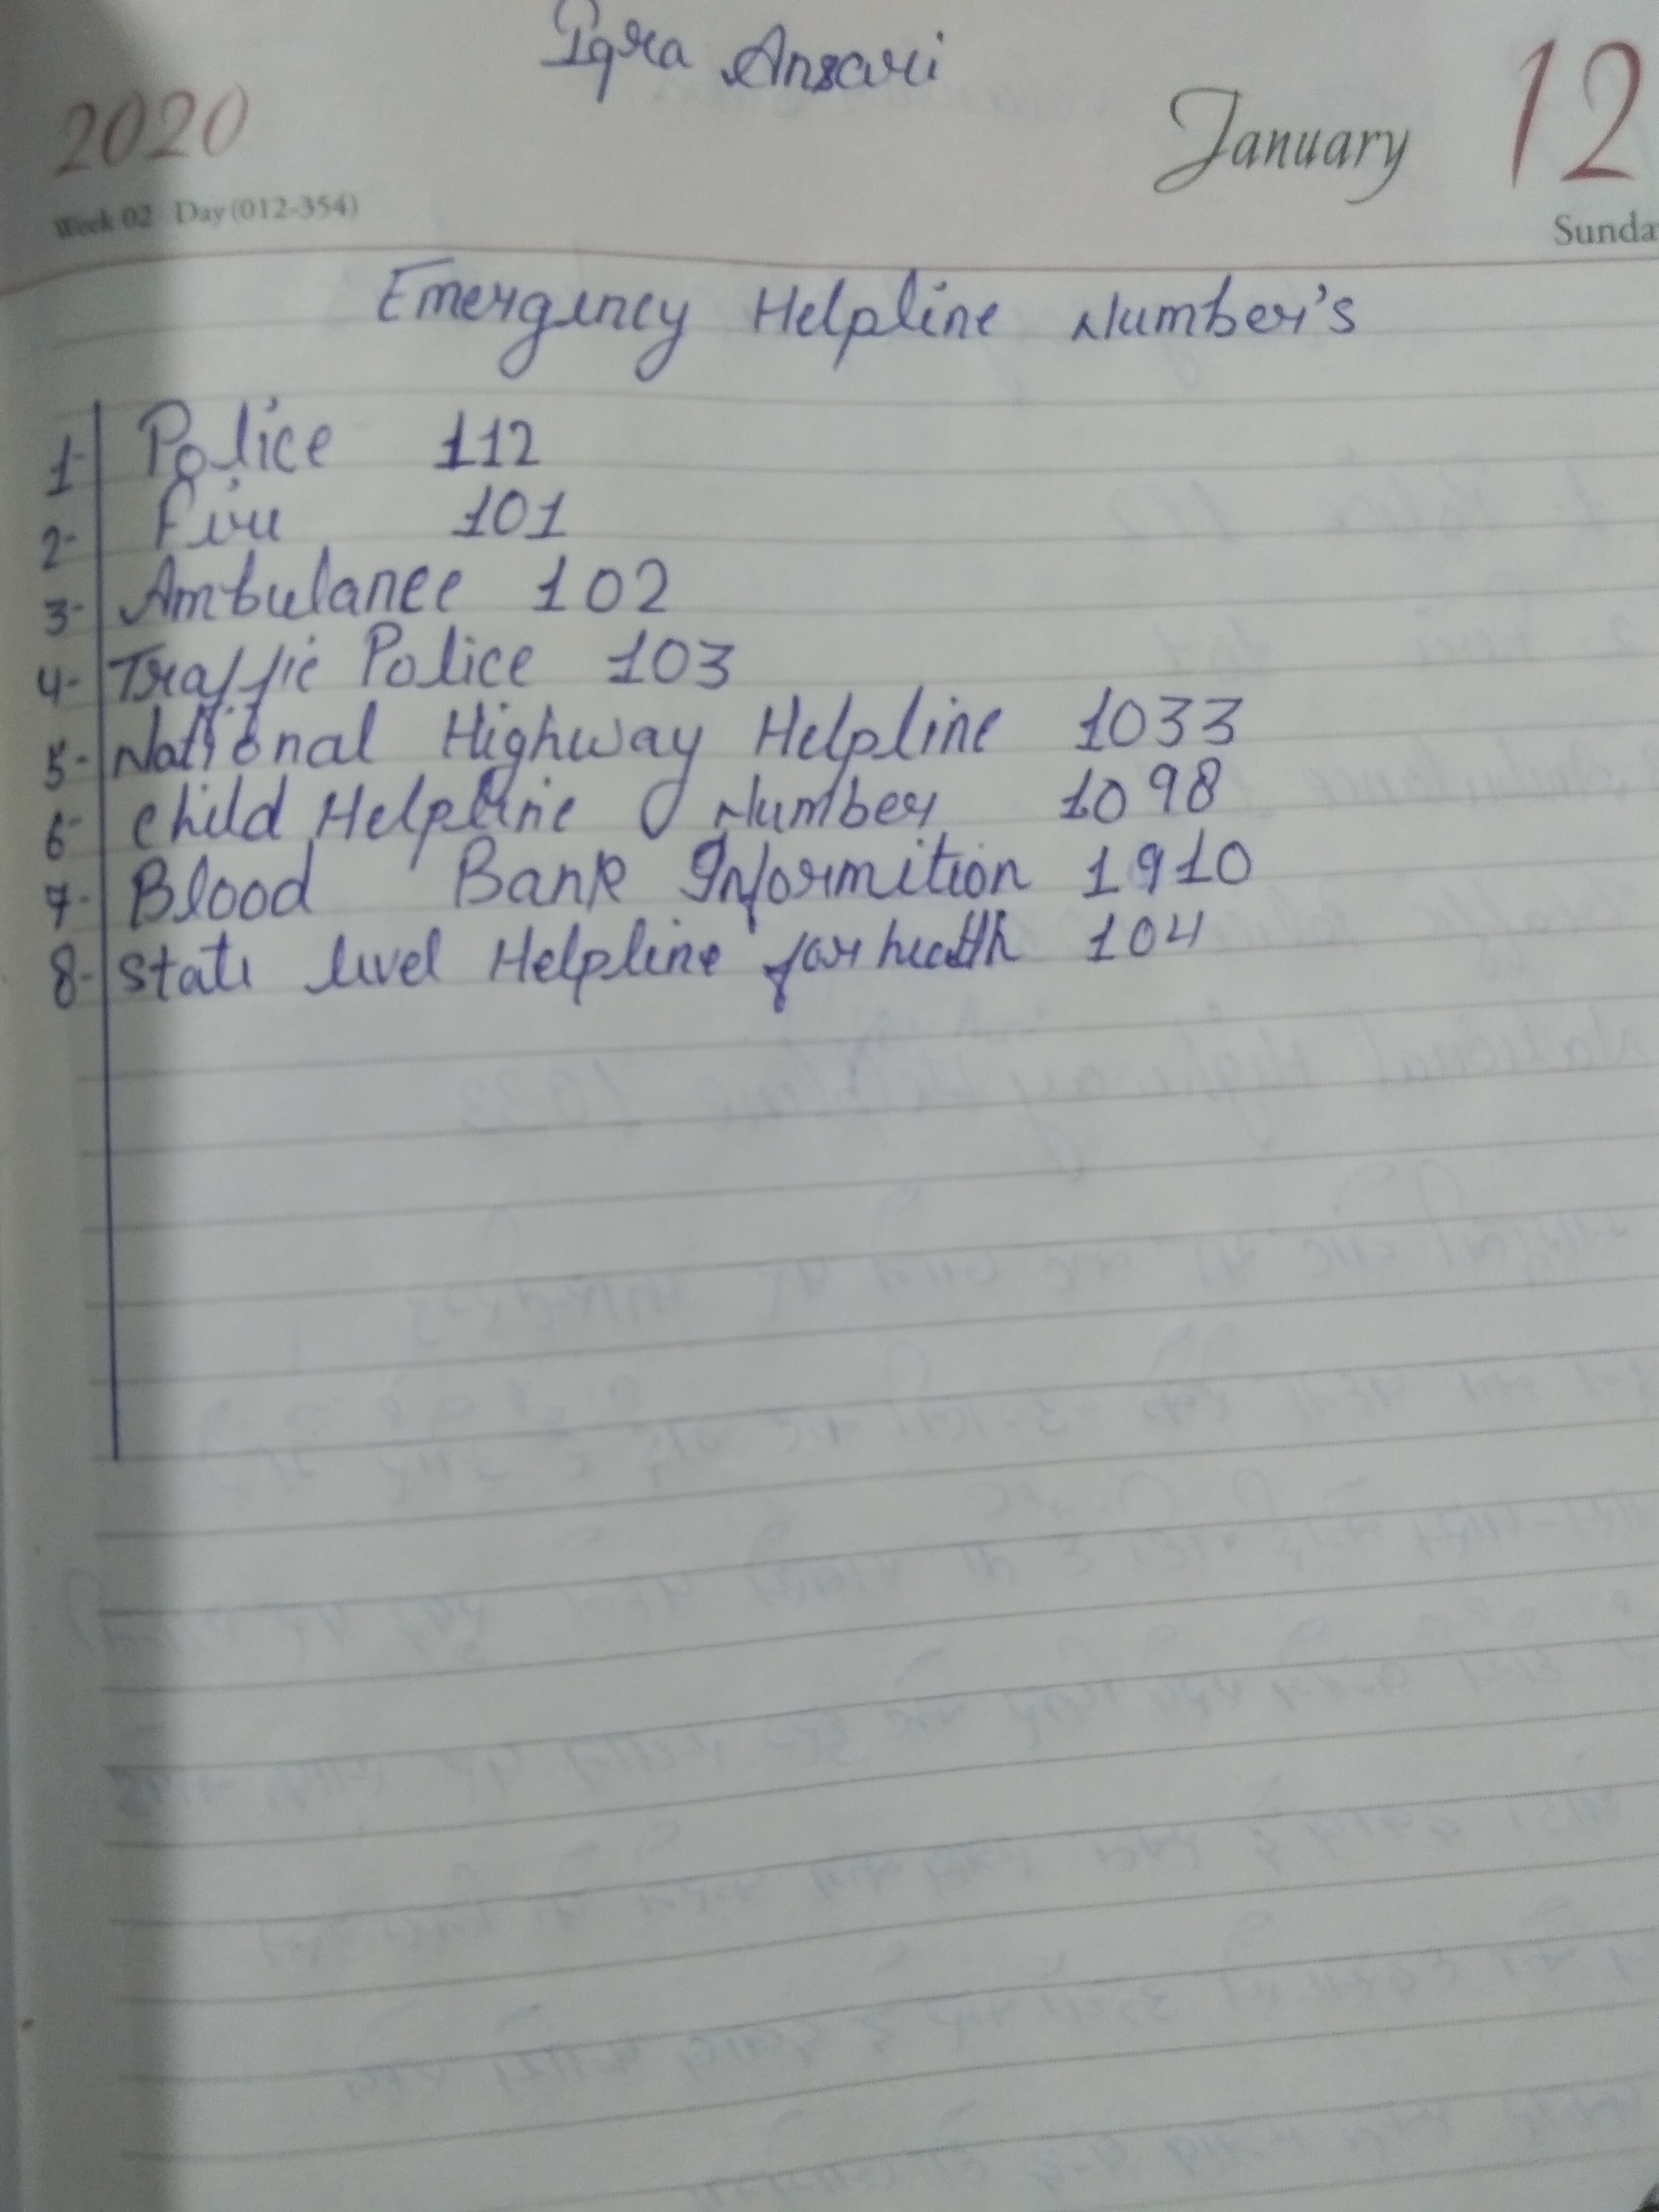 Iqra Ansari
2020
January 12
Week 02 Day (012-354)
Sunda
Emergency Helpline Number's
1- Police 112
2- Fire 101
3- Ambulance 102
4- Traffic Police 103
5- National Highway Helpline 1033
6- Child Helpline Number 1098
7- Blood Bank Informition 1910
8- State level Helpline for health 104